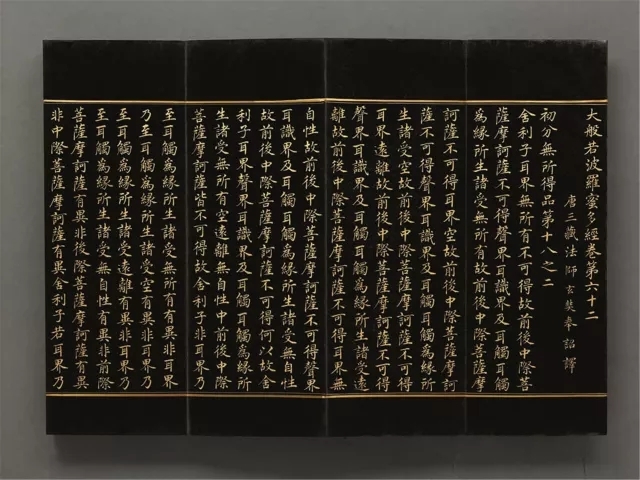 大般若波羅蜜多經卷第六十二
唐三藏法師玄奘奉 詔譯
初分無所得品第十八之二
舍利子耳界無所有不可得故前後中際菩
薩摩訶薩不可得聲界耳識界及耳觸耳觸
為緣所生諸受無所有故前後中際菩薩摩
訶薩不可得耳界空故前後中際菩薩摩訶
薩不可得聲界耳識界及耳觸耳觸為緣所
生諸受空故前後中際菩薩摩訶薩不可得
耳界遠離故前後中際菩薩摩訶薩不可得
聲界耳識界及耳觸耳觸為緣所生諸受遠
離故前後中際菩薩摩訶薩不可得耳界無
自性故前後中際菩薩摩訶薩不可得聲界
耳識界及耳觸耳觸為緣所生諸受無自性
故前後中際菩薩摩訶薩不可得何以故舍
利子耳界聲界耳識界及耳觸耳觸為緣所
生諸受無所有空遠離無自性中前後中際
菩薩摩訶薩皆不可得故舍利子非耳界乃
至耳觸為緣所生諸受無所有有異非耳界
乃至耳觸為緣所生諸受空有異非耳界乃
至耳觸為緣所生諸受遠離有異非耳界乃
至耳觸為緣所生諸受無自性有異非前際
菩薩摩訶薩有異非後際菩薩摩訶薩有異
非中際菩薩摩訶薩有異舍利子若耳界乃